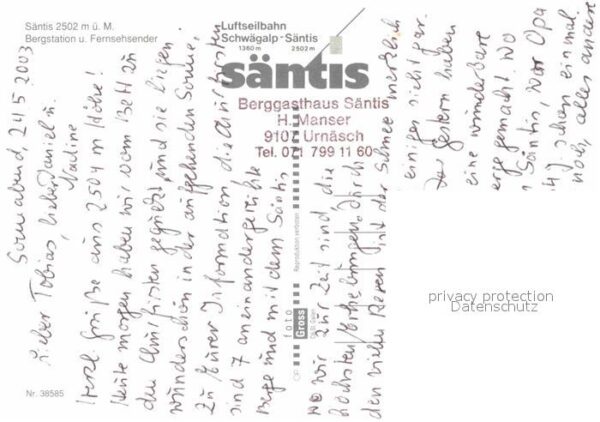 Säntis 2502 m ü. M.
Bergstation u. Fernsehsender
Luftseilbahn
Schwägalp-Säntis
1360 m 2502 m
säntis
Berggasthaus Säntis
H. Manser
9107 Urnäsch
Tel. 071 799 11 60
Sonnabend, 24.5.2003
Lieber Tobias, lieber Daniel u.
Nadine
Herzl. Grüße aus 2504 m Höhe!
Heute morgen haben wir vom Bett zu
den Churfirsten gegrüßt, und sie liegen
wunderschön in der aufgehenden Sonne.
Zu Eurer Information, die Churfirsten
sind 7 aneinandergereihte
Berge und mit dem Säntis
wo wir zur Zeit sind, die
höchsten Erhebungen. Durch
den vielen Regen ist der Schnee
einiges nicht gar.
Gestern haben
eine wunderbare
gemacht. Wo
Säntis, war Opa
schon einmal
noch, alles andere
Reproduktion verboten
foto
Gross
Nr. 38585
privacy protection
Datenschutz